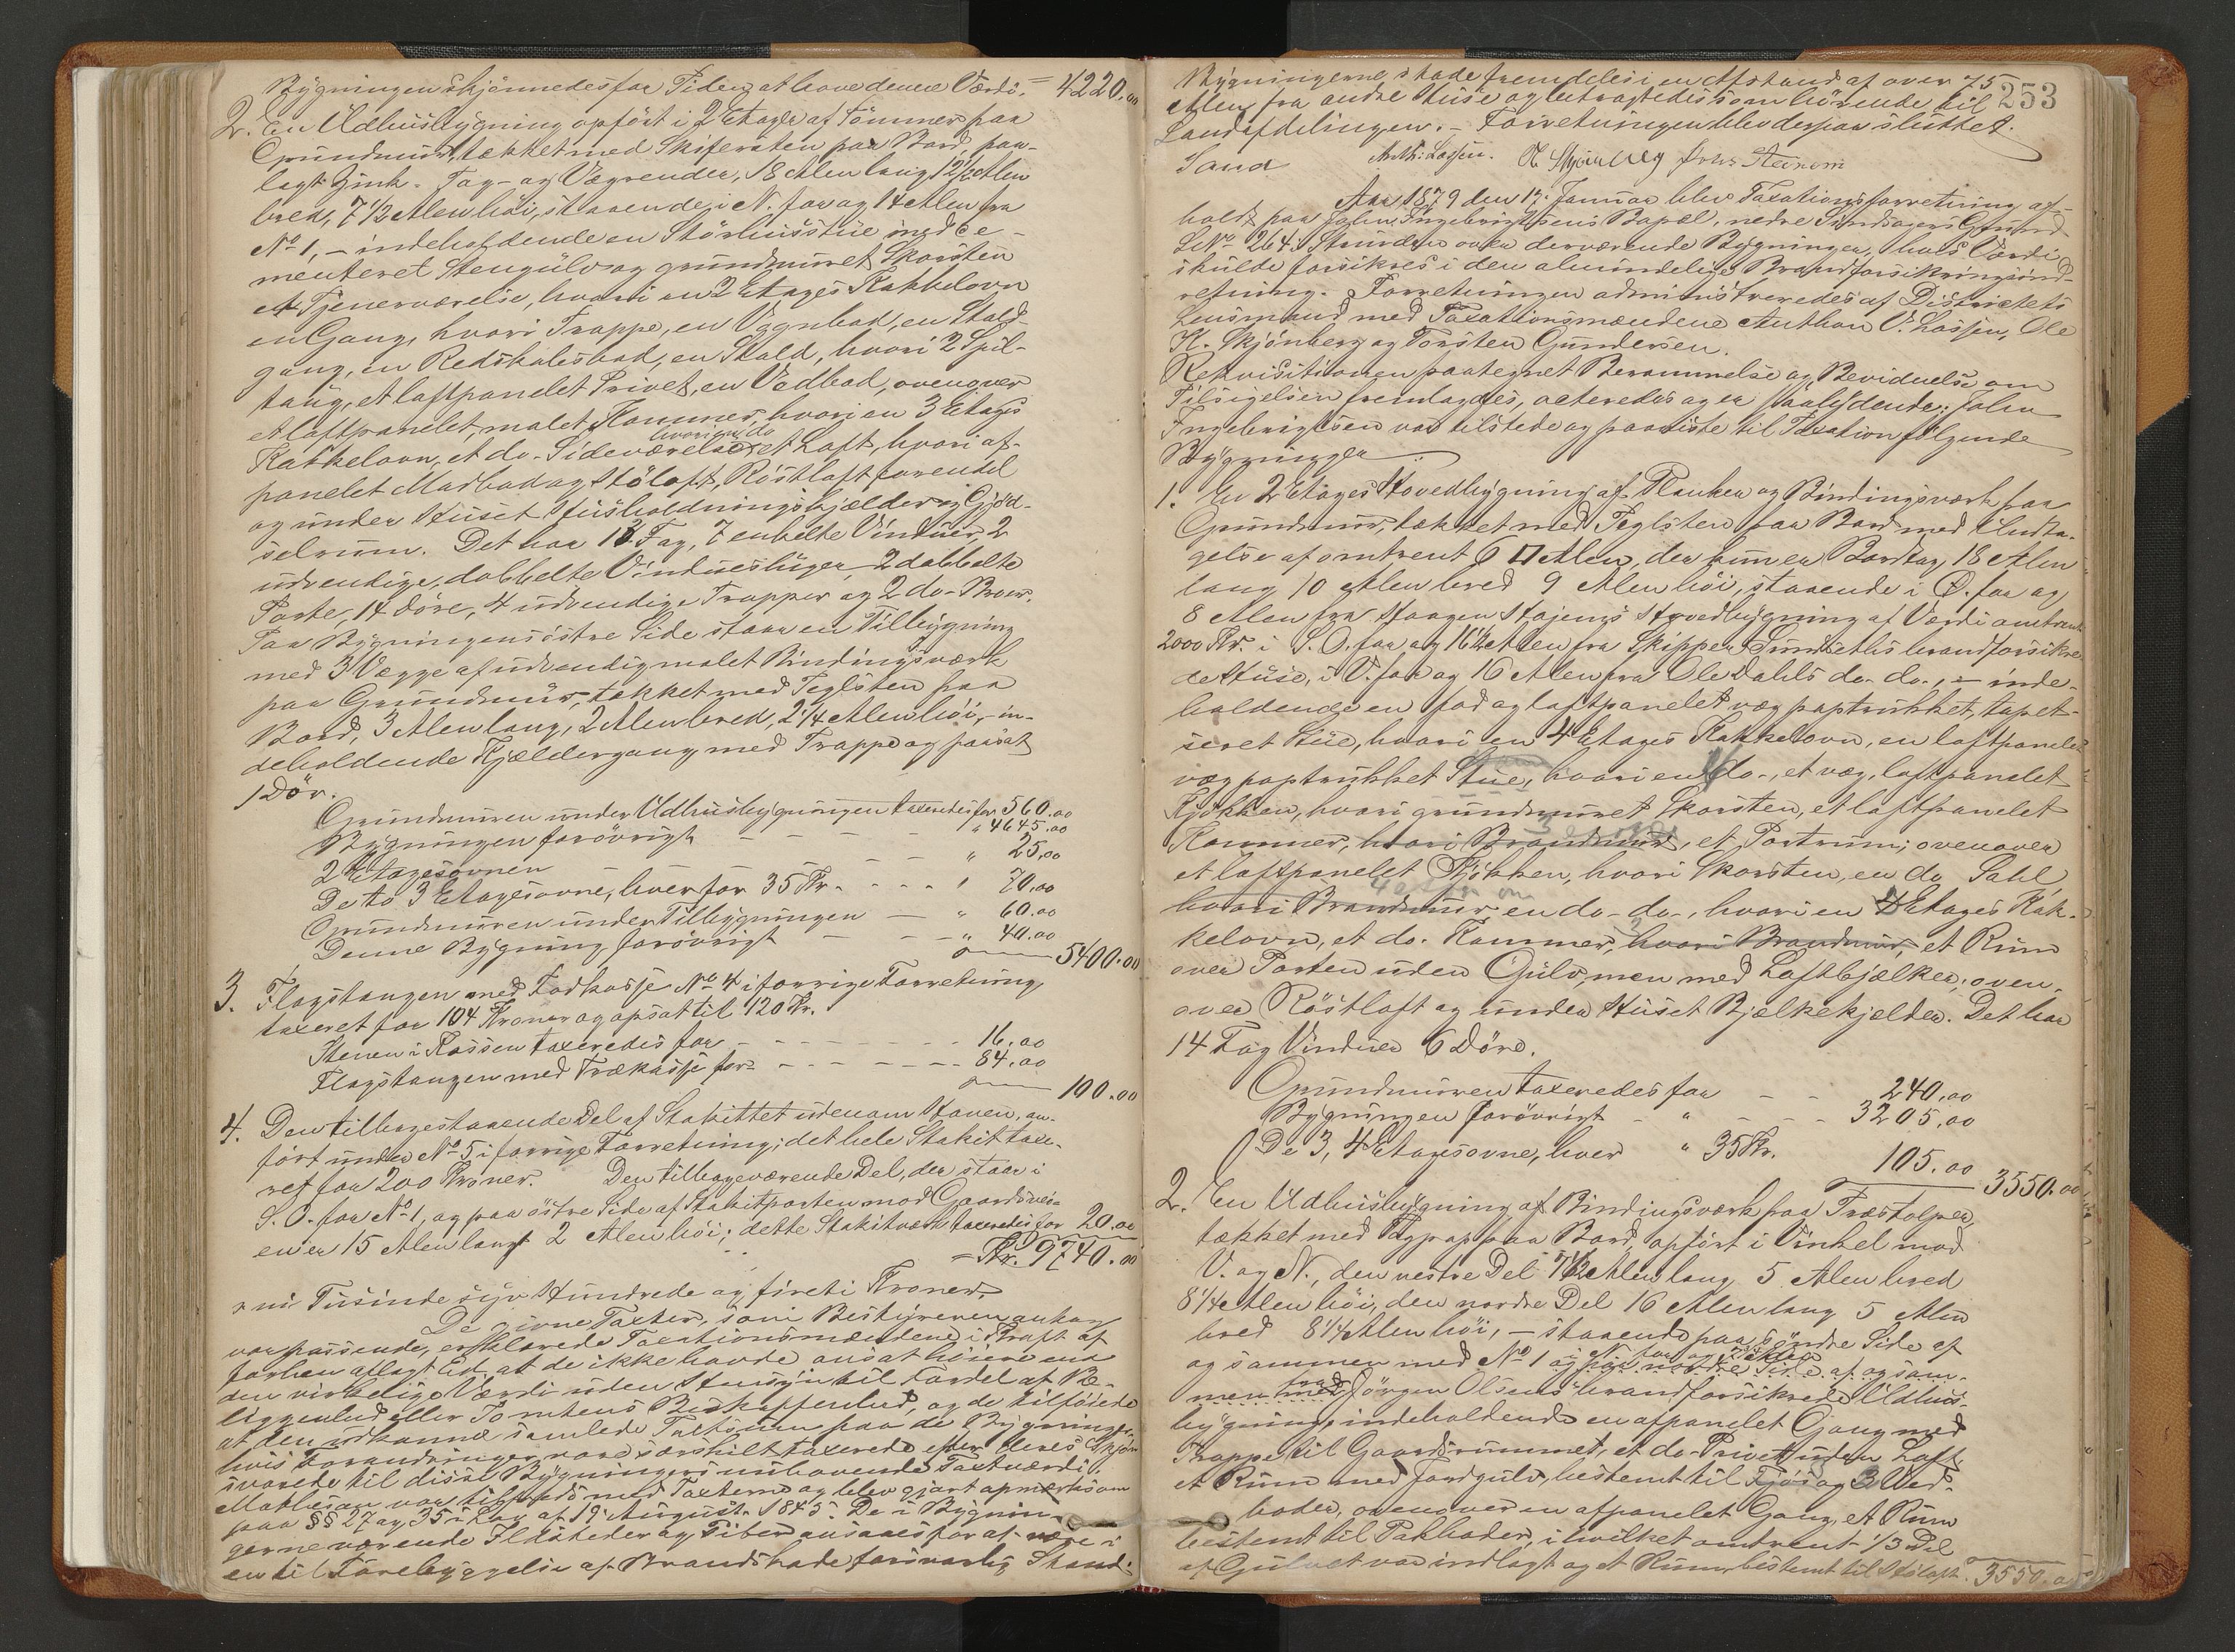 Bygningen skjønnedes for Tiden at have denne Værdi. = 4220.00
2. En Udhusbygning opført i 2 Etager af Tømmer paa
Grundmur, tækket med Skifersten paa Bord, paa-
lagt Zink- Tag- og Vægrender, 18 Alen lang 12½ Alen
bred, 7½ Alen høi, staaende i N. for og 14 Alen fra
No 1, – indeholdende en Størhusstue med Ce-
menteret Stengulv og grundmuret Skorsten
et Tjenerværelse, hvori en 2 Etages Kakkelovn
en Gang, hvori Trappe, en Vognbod, en Stald-
gang, en Redskabsbod, en Stald, hvori 2 Spil-
taug, et loftpanelet Privet, en Vedbod, ovenover
et loftpanelet, malet Kammer, hvori en 3 Etages
Kakkelovn, et do. Sideværelse hvori en do et Loft, hvori af-
panelet Madbod og Høloft, Røstloft forendel
og under Huset Husholdningskjælder og Gjød-
selrum. Det har 13 Fag, 7 enkelte Vinduer, 2
udvendige, dobbelte Vinduesluger, 2 dobbelte
Porte, 14 Døre, 4 udvendige Trapper og 2 do- Broer.
Paa Bygningens østre Side staar en Tilbygning
med 3 Vægge af udvendig malet Bindingsværk
paa Grundmur, tækket med Teglsten paa
Bord, 3 Alen lang, 2 Alen bred, 2¼ Alen høi, – in-
deholdende Kjældergang med Trappe og paasat
1 Dør.
Grundmuren under Udhusbygningen taxeredes for 560.00
Bygningen forøvrigt – – – " 4645.00
2 Etagesovnen – – " 25,00
De to 3 Etagesovne, hver for 35 Kr. - - - " 70.00
Grundmuren under Tilbygningen – " 60.00
Denne Bygning forøvrigt – – " 40.00
5400.00
3. Flagstangen med Fodkasse No 4 i forrige Forretning
taxeret for 104 Kroner og opsat til 120 Kr.
Stenen i Kassen taxeredes for - - - - - - - 16.00
Flagstangen med Trækasse for - - - - - - 84.00
100.00
4. Den tilbagestaaende Del af Stakittet udenom Haven, an-
ført under No 5 i forrige Forretning; det hele Stakit taxe-
ret for 200 Kroner. Den tilbageværende Del, der staar i
S.O. for No 1, og paa østre Side af Stakitporten mod Gaardsvei-
en er 15 Alen langt 2 Alen høi; dette Stakitværk taxeredes for 20.00
= Kr. 9740.00
= ni Tusinde syv Hundrede og fireti Kroner.
De givne Taxter, som Bestyreren ansaa
var passende, erklærede Taxationsmændene i Kraft af
forhen aflagt Ed at de ikke havde ansat høiere end
den virkelige Værdi uden Hensyn til Fordel af Be-
liggenhed eller Tomtens Beskaffenhed, og de tilføiede
at den udkomne samlede Taxtsum paa de Bygninger
hvis Forandringer vare særskilt taxerede efter deres Skjøn
svarede til disse Bygningers nuhavende Taxtværdi.
Mathesen var tilfreds med Taxterne og blev gjort opmærksom
paa §§ 27 og 35 i Lov af 19 August 1845. De i Bygnin-
gerne værende Ildsteder og Piber ansaaes for at være i
en til Forebyggelse af Brandskade forsvarlig Stand.
253
Bygningerne stode fremdeles i en Afstand af over 75
Alen fra andre Huse og betragtedes som hørende til
Landafdelingen. – Forretningen blev derpaa sluttet.
Sand Anth: Lassen. O. H. Skjønberg
Aar 1879 den 17. Januar blev Taxationsforretning af-
holdt paa John Ingebrigtsens Bopæl, nedre Sindsagers Grund
LNo 264. Stranden over derværende Bygninger, hvis Værdi
skulde forsikres i den almindelige Brandforsikringsind-
retning. Forretningen administreredes af Districtets
Lensmand med Taxationsmændene Anthon V. Lassen, Ole
H. Skjønberg og Torsten Gundersen.
Rekvisitionen paategnet Berammelse og Bevidnelse om
Tilsigelsen fremlagdes, acteredes og er saalydende: John
Ingebrigtsen var tilstede og paaviste til Taxation følgende
Bygninger:
1. En 2 Etages Hovedbygning af Planker og Bindingsværk paa
Grundmur, tækket med Teglsten paa Bord med Undta-
gelse af omtrent 6 □ Alen, der kun er Bordtag, 18 Alen
lang 10 Alen bred 9 Alen høi, staaende i Ø. for og
8 Alen fra Haagen Hajems Hovedbygning af Værdi omtrent
2000 Kr. i S.O. for og 16½ Alen fra Skipper Sundseths brandforsikre-
de Huse, i V. for og 16 Alen fra Ole Dahls do. do., – inde-
holdende en fod og loftpanelet væg paptrukket, tapet-
seret Stue, hvori en 4 Etages Kakkelovn, en loftpanelet
væg paptrukket Stue, hvori en do-, et væg, loftpanelet
Kjøkken, hvori grundmuret Skorsten, et loftpanelet
Kammer, hvori Brandmur, et Portrum; ovenover
et loftpanelet Kjøkken, hvori Skorsten, en do Sahl
hvori Brandmur, en do- do-, hvori en 4 Etages Kak-
kelovn, et do. Kammer, hvori Brandmur, et Rum
over Porten uden Gulv, men med Loftbjælker; oven-
over Røstloft og under Huset Bjælkekjelder. Det har
14 Fag Vinduer 6 Døre.
Grundmuren taxeredes for – – 240,00
Bygningen forøvrigt - " - - - 3205,00
De 3, 4 Etagesovne, hver " 35 Kr. 105.00
3550.00
2. En Udhusbygning af Bindingsværk paa Træstolper,
tækket med Tagpap paa Bord, opført i Vinkel mod
V. og N., den vestre Del 7½ Alen lang 5 Alen bred
8¼ Alen høi, den nordre Del 16 Alen lang 5 Alen
bred 8¼ Alen høi, – staaende paa søndre Side af
og sammen med No 1 og paa nordre Side af og sam-
men med Jørgen Olsens brandforsikrede Udhus-
bygning, indeholdende en afpanelet Gang med
Trappe til Gaardsrummet, et do. Privet uden Loft,
et Rum med Jordgulv, bestemt til Fjøs og 3 Ved-
boder, ovenover en afpanelet Gang, et Rum
bestemt til Pakboder, i hvilket omtrent 1/3 Del
af Gulvet var indlagt og et Rum, bestemt til Høloft. 3550.00